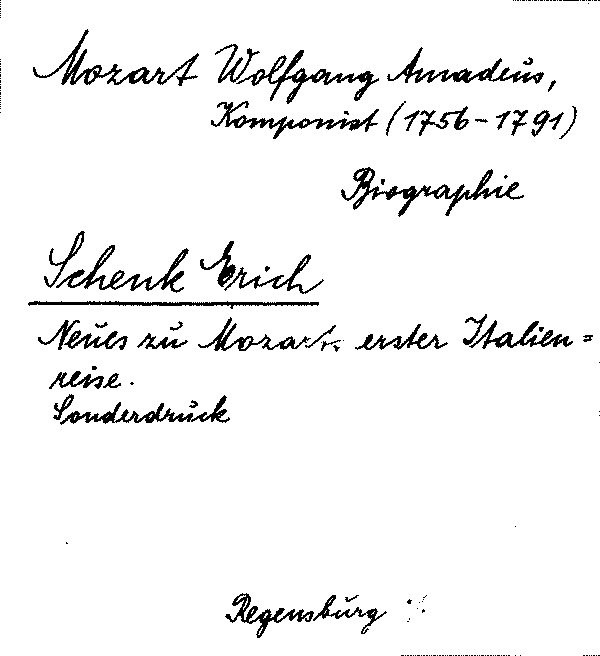 Mozart Wolfgang Amadeus,
Komponist (1756-1791)
Biographie
Schenk Erich
Neues zu Mozarts erster Italien=
reise.
Sonderdruck
Regensburg ./.